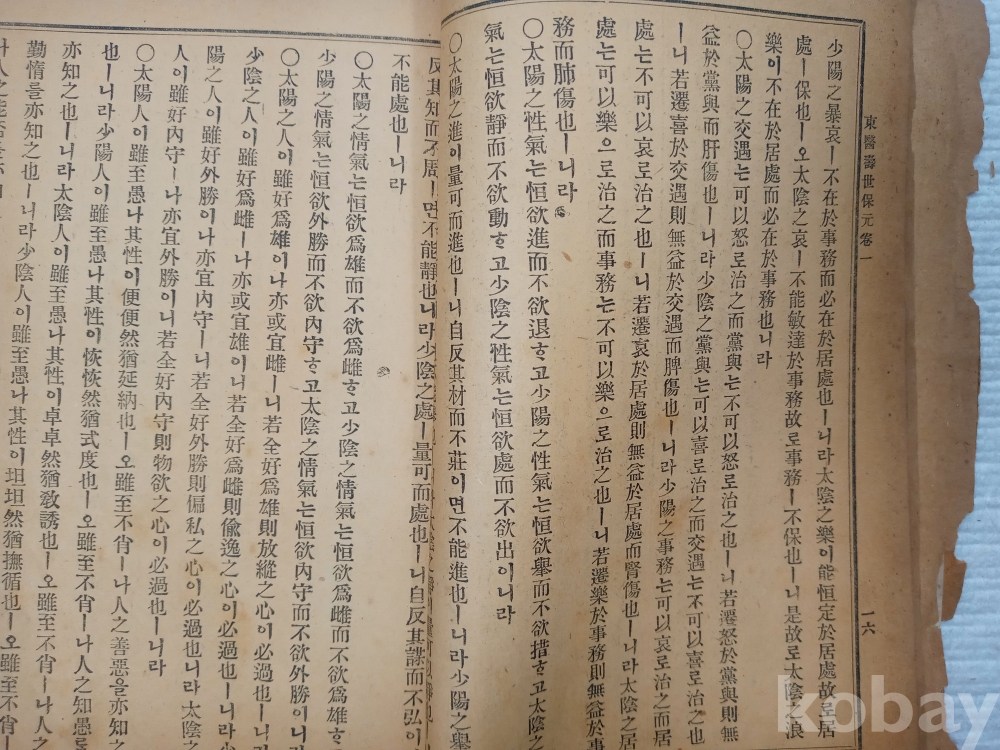 東醫壽世保元卷一
一六
少陽之暴哀ㅣ不在於事務而必在於居處也ㅣ니라太陰之樂이能恒定於居處故로居
處ㅣ保也ㅣ오太陰之哀ㅣ不能敏達於事務故로事務ㅣ不保也ㅣ니是故로太陰之浪
樂이不在於居處而必在於事務也니라
○太陽之交遇는可以怒로治之而黨與는不可以怒로治之也ㅣ니若遷怒於黨與則無
益於黨與而肝傷也ㅣ니라少陰之黨與는可以喜로治之而交遇는不可以喜로治之也
ㅣ니若遷喜於交遇則無益於交遇而脾傷也ㅣ니라少陽之事務는可以哀로治之而居
處는不可以哀로治之也ㅣ니若遷哀於居處則無益於居處而腎傷也ㅣ니라太陰之居
處는可以樂으로治之而事務는不可以樂으로治之也ㅣ니若遷樂於事務則無益於事
務而肺傷也ㅣ니라
○太陽之性氣는恒欲進而不欲退ᄒᆞ고少陽之性氣는恒欲擧而不欲措ᄒᆞ고太陰之性
氣는恒欲靜而不欲動ᄒᆞ고少陰之性氣는恒欲處而不欲出이니라
○太陽之進이量可而進也ㅣ니自反其材而不莊이면不能進也ㅣ니라少陽之擧
反其知而不周ㅣ면不能靜也니라少陰之處ㅣ量可而處也ㅣ니自反其謀而不弘이
不能處也ㅣ니라
○太陽之情氣는恒欲爲雄而不欲爲雌ᄒᆞ고少陰之情氣는恒欲爲雌而不欲爲雄ᄒᆞ
少陽之情氣는恒欲外勝而不欲內守ᄒᆞ고太陰之情氣는恒欲內守而不欲外勝이니라
○太陽之人이雖好爲雄이나亦或宜雌ㅣ니若全好爲雄則放縱之心이必過也ㅣ니라
少陰之人이雖好爲雌ㅣ나亦或宜雄이니若全好爲雌則偸逸之心이必過也ㅣ니라少
陽之人이雖好外勝이나亦宜內守ㅣ니若全好外勝則偏私之心이必過也니라太陰之
人이雖好內守ㅣ나亦宜外勝이니若全好內守則物欲之心이必過也ㅣ니라
○太陽人이雖至愚나其性이便便然猶延納也ㅣ오雖至不肖ㅣ나人之善惡을亦知之
也ㅣ니라少陽人이雖至愚나其性이恢恢然猶式度也ㅣ오雖至不肖ㅣ나人之知愚
亦知之也ㅣ니라太陰人이雖至愚나其性이卓卓然猶敎誘也ㅣ오雖至不肖ㅣ나人之
勤惰를亦知之也ㅣ니라少陰人이雖至愚나其性이坦坦然猶撫循也ㅣ오雖至不肖ㅣ
kobay